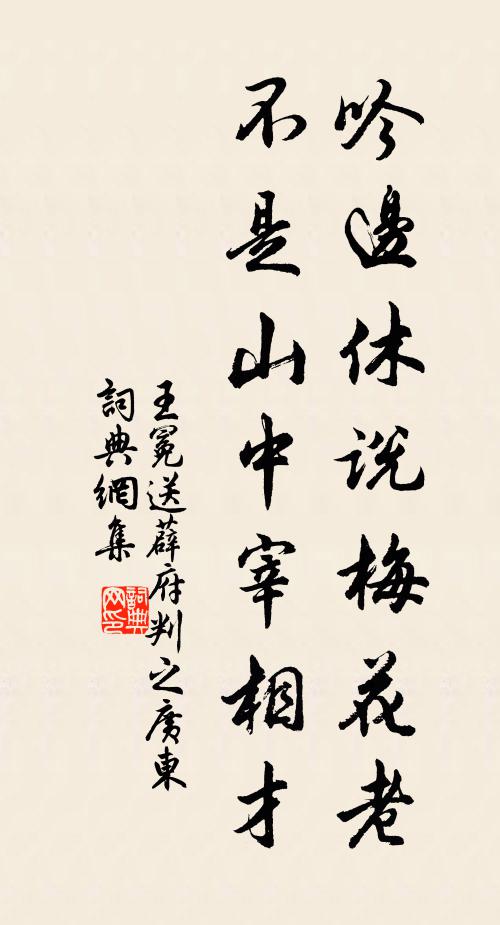 吟邊休説梅花老
不是山中宰相才
王冕送薛府判之廣東
詞典網集
詞典
网印